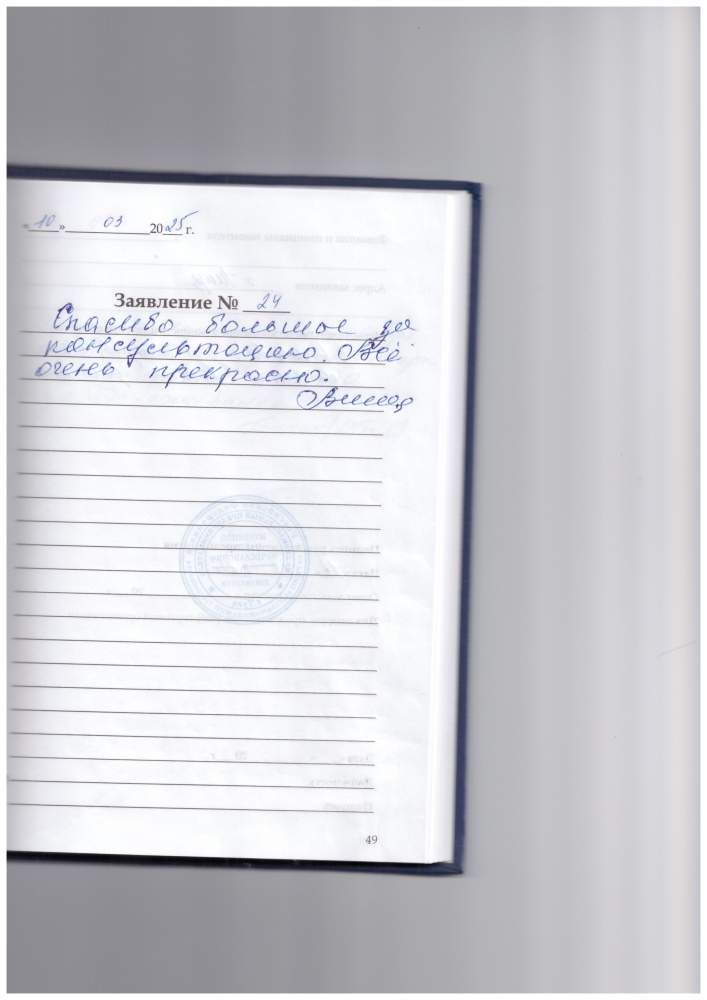 «10» 03 2025 г.
Заявление № 24
Спасибо большое за
консультацию. Всё
очень прекрасно.
49